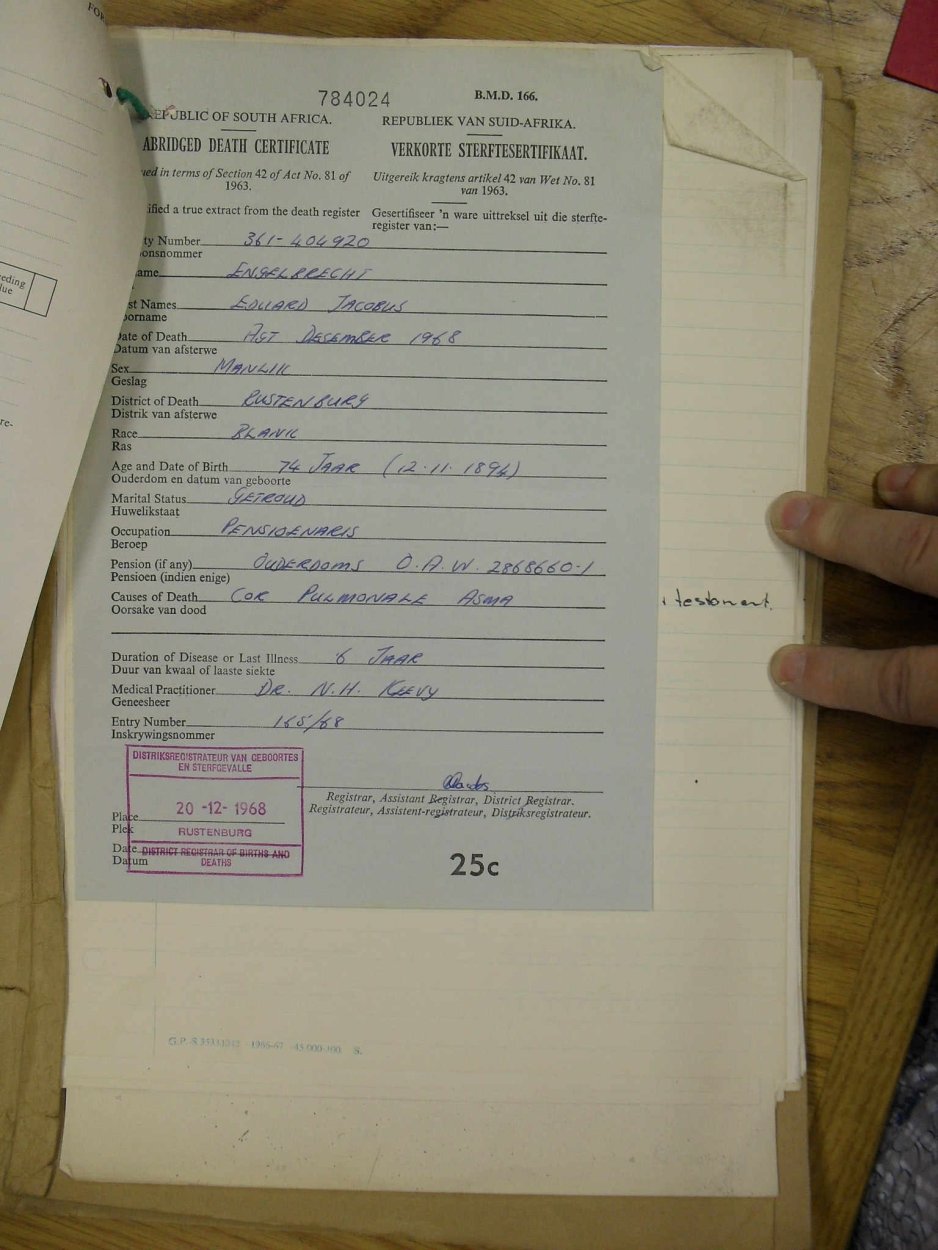 FOR
784024
B.M.D. 166.
REPUBLIC OF SOUTH AFRICA.
REPUBLIEK VAN SUID-AFRIKA.
ABRIDGED DEATH CERTIFICATE
VERKORTE STERFTESERTIFIKAAT.
ued in terms of Section 42 of Act No. 81 of
1963.
Uitgereik kragtens artikel 42 van Wet No. 81
van 1963.
ified a true extract from the death register
Gesertifiseer 'n ware uittreksel uit die sterfte-
register van:—
ty Number 361-404920
onsnommer
ame ENGELBRECHT
st Names EDUARD JACOBUS
oorname
Date of Death AGT DESEMBER 1968
Datum van afsterwe
Sex MANLIK
Geslag
District of Death RUSTENBURG
Distrik van afsterwe
Race BLANK
Ras
Age and Date of Birth 74 JAAR (12.11.1894)
Ouderdom en datum van geboorte
Marital Status GETROUD
Huwelikstaat
Occupation PENSIOENARIS
Beroep
Pension (if any) OUDERDOMS O.A.W. 2868660-1
Pensioen (indien enige)
Causes of Death COR PULMONALE ASMA
Oorsake van dood
Duration of Disease or Last Illness 6 JAAR
Duur van kwaal of laaste siekte
Medical Practitioner DR. N.H. KEEVY
Geneesheer
Entry Number 165/68
Inskrywingsnommer
DISTRIKSREGISTRATEUR VAN GEBOORTES
EN STERFGEVALLE
20 -12- 1968
RUSTENBURG
DISTRICT REGISTRAR OF BIRTHS AND
DEATHS
Place
Plek
Date
Datum
Registrar, Assistant Registrar, District Registrar.
Registrateur, Assistent-registrateur, Distriksregistrateur.
25c
eeding
lue
re-
testament.